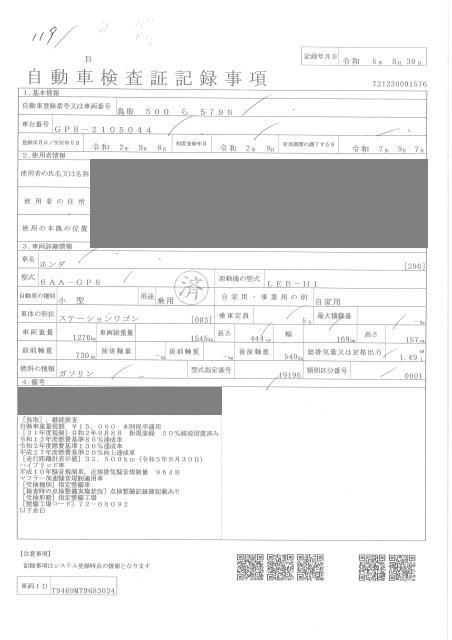 119/
B
記録年月日 令和 5年 8月30日
自動車検査証記録事項
721230091576
1.基本情報
自動車登録番号又は車両番号 鳥取 500 ら 5798
車台番号 GP8-2105044
登録年月日/交付年月日 令和 2年 9月 8日 初度登録年月 令和 2年 9月 有効期間の満了する日 令和 7年 9月 7日
2.使用者情報
使用者の氏名又は名称
使用者の住所
使用の本拠の位置
3.車両詳細情報
車名 ホンダ [296]
型式 6AA-GP8 済 原動機の型式 LEB-H1
自動車の種別 小型 用途 乗用 自家用・事業用の別 自家用
車体の形状 ステーションワゴン [003] 乗車定員 5人 最大積載量 -kg
車両重量 1270kg 車両総重量 1545kg 長さ 444cm 幅 169cm 高さ 157cm
前前軸重 730kg 前後軸重 -kg 後前軸重 -kg 後後軸重 540kg 総排気量又は定格出力 1.49L
燃料の種類 ガソリン 型式指定番号 19196 類別区分番号 0001
4.備考
[鳥取],継続検査
自動車重量税額 ¥15,000 本則税率適用
令和12年度燃費基準85%達成車
令和2年度燃費基準130%達成車
平成27年度燃費基準20%向上達成車
[走行距離計表示値] 32,500km (令和5年8月30日)
ハイブリッド車
平成10年騒音規制車,近接排気騒音規制値 96dB
マフラー加速騒音規制適用車
[受検種別] 指定整備車
[検査時の点検整備実施状況] 点検整備記録簿記載あり
[受検形態] 指定整備工場
[整備工場コード] 72-00092
以下余白
【注意事項】
記録事項はシステム登録時点の情報となります
車両ID T9469MT9683034